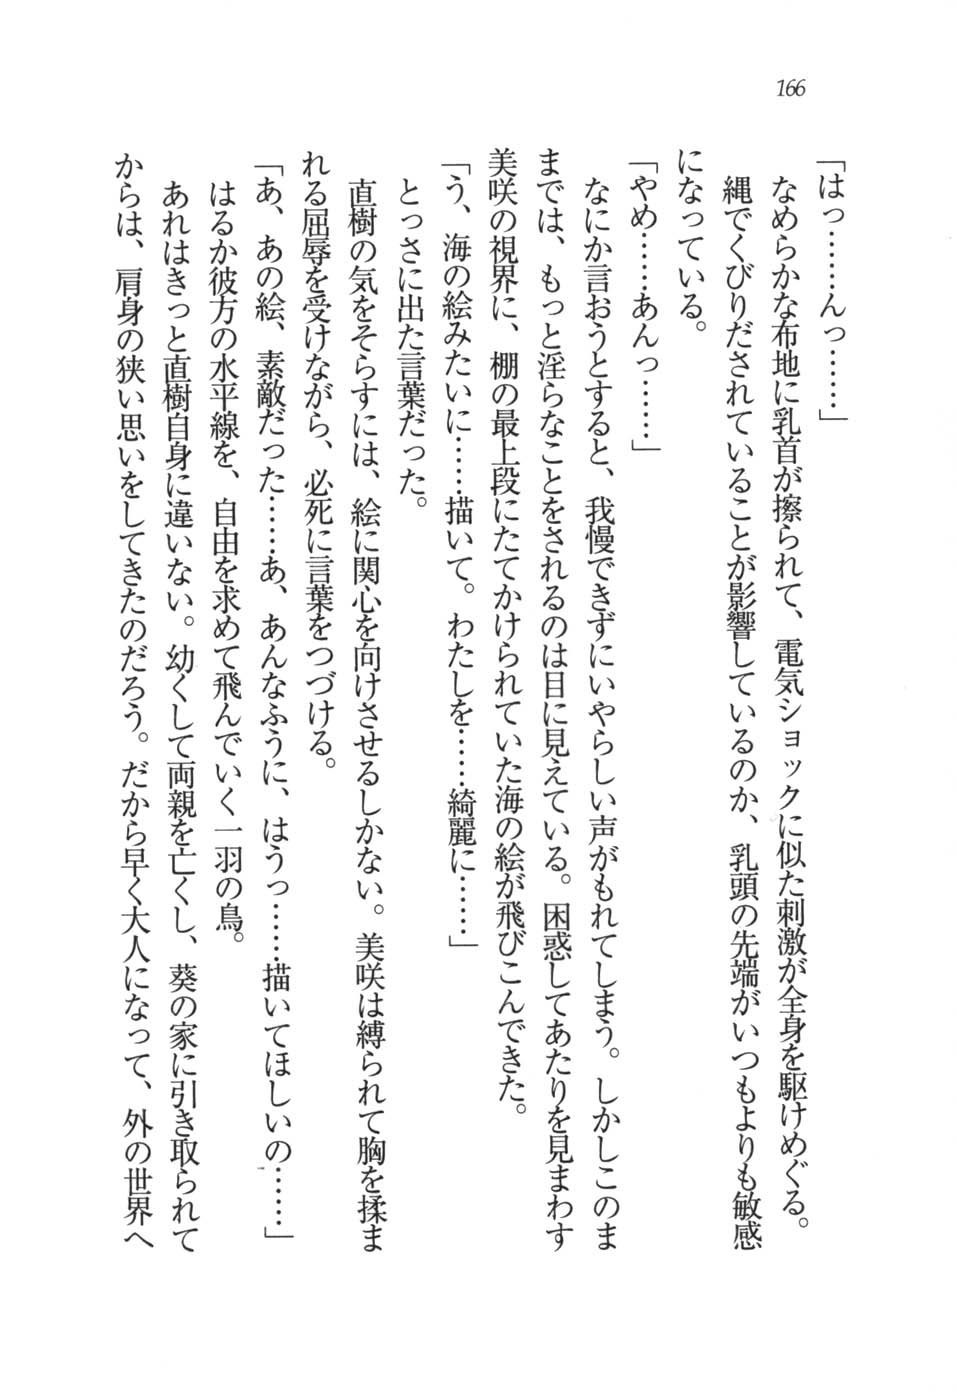 166
「はっ……んっ……」
なめらかな布地に乳首が擦られて、電気ショックに似た刺激が全身を駆けめぐる。
縄でくびりだされていることが影響しているのか、乳頭の先端がいつもよりも敏感
になっている。
「やめ……あんっ……」
なにか言おうとすると、我慢できずにいやらしい声がもれてしまう。しかしこのま
までは、もっと淫らなことをされるのは目に見えている。困惑してあたりを見まわす
美咲の視界に、棚の最上段にたてかけられていた海の絵が飛びこんできた。
「う、海の絵みたいに……描いて。わたしを……綺麗に……」
とっさに出た言葉だった。
直樹の気をそらすには、絵に関心を向けさせるしかない。美咲は縛られて胸を揉ま
れる屈辱を受けながら、必死に言葉をつづける。
「あ、あの絵、素敵だった……あ、あんなふうに、はうっ……描いてほしいの……」
はるか彼方の水平線を、自由を求めて飛んでいく一羽の鳥。
あれはきっと直樹自身に違いない。幼くして両親を亡くし、葵の家に引き取られて
からは、肩身の狭い思いをしてきたのだろう。だから早く大人になって、外の世界へ